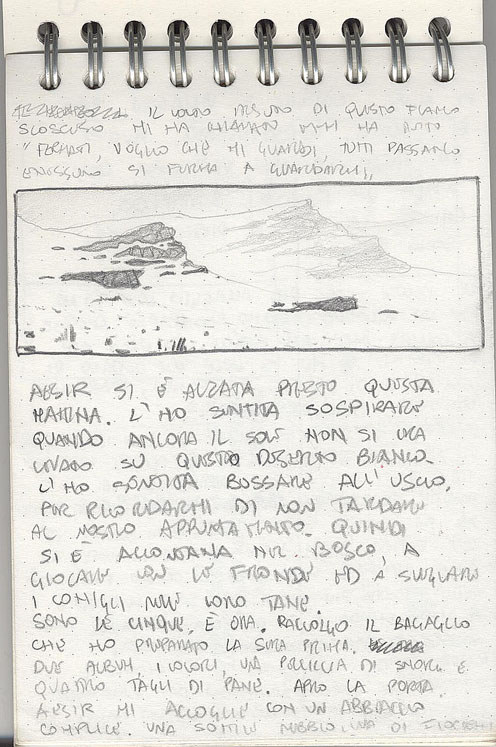 IL VOLTO NASUTO DI QUESTO FIANCO
SCOSCESO MI HA CHIAMATO MI HA DETTO
"FERMATI, VOGLIO CHE MI GUARDI, TUTTI PASSANO
E NESSUNO SI FERMA A GUARDARMI"
AESIR SI È ALZATA PRESTO QUESTA
MATTINA. L'HO SENTITA SOSPIRARE
QUANDO ANCORA IL SOLE NON SI ERA
LEVATO SU QUESTO DESERTO BIANCO.
L'HO SENTITA BUSSARE ALL'USCIO,
PER RICORDARMI DI NON TARDARE
AL NOSTRO APPUNTAMENTO. QUINDI
SI È ALLONTANA NEL BOSCO, A
GIOCARE CON LE FRONDE ED A SVEGLIARE
I CONIGLI NELLE LORO TANE.
SONO LE CINQUE, È ORA. RACCOLGO IL BAGAGLIO
CHE HO PREPARATO LA SERA PRIMA.
DUE ALBUM, I COLORI, UNA PELLICCIA DI E
QUATTRO TAGLI DI PANE. APRO LA PORTA.
AESIR MI ACCOGLIE CON UN ABBRACCIO
COMPLICE. UNA SOTTILE NEBBIOLINA DI FIOCCHI